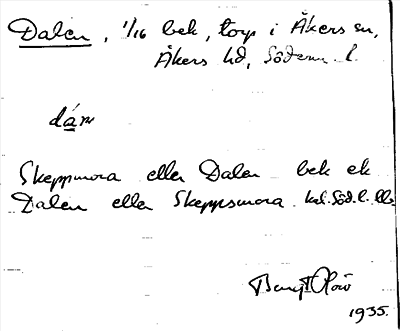 Dalen, 1/16 bek, torp i Åkers sn,
Åkers hd, Söderm. l.
dá̱ṇ
Skeppmora eller Dalen bek ek
Dalen eller Skeppsmora kal. Söd. l.
Bengt Olov
1935.